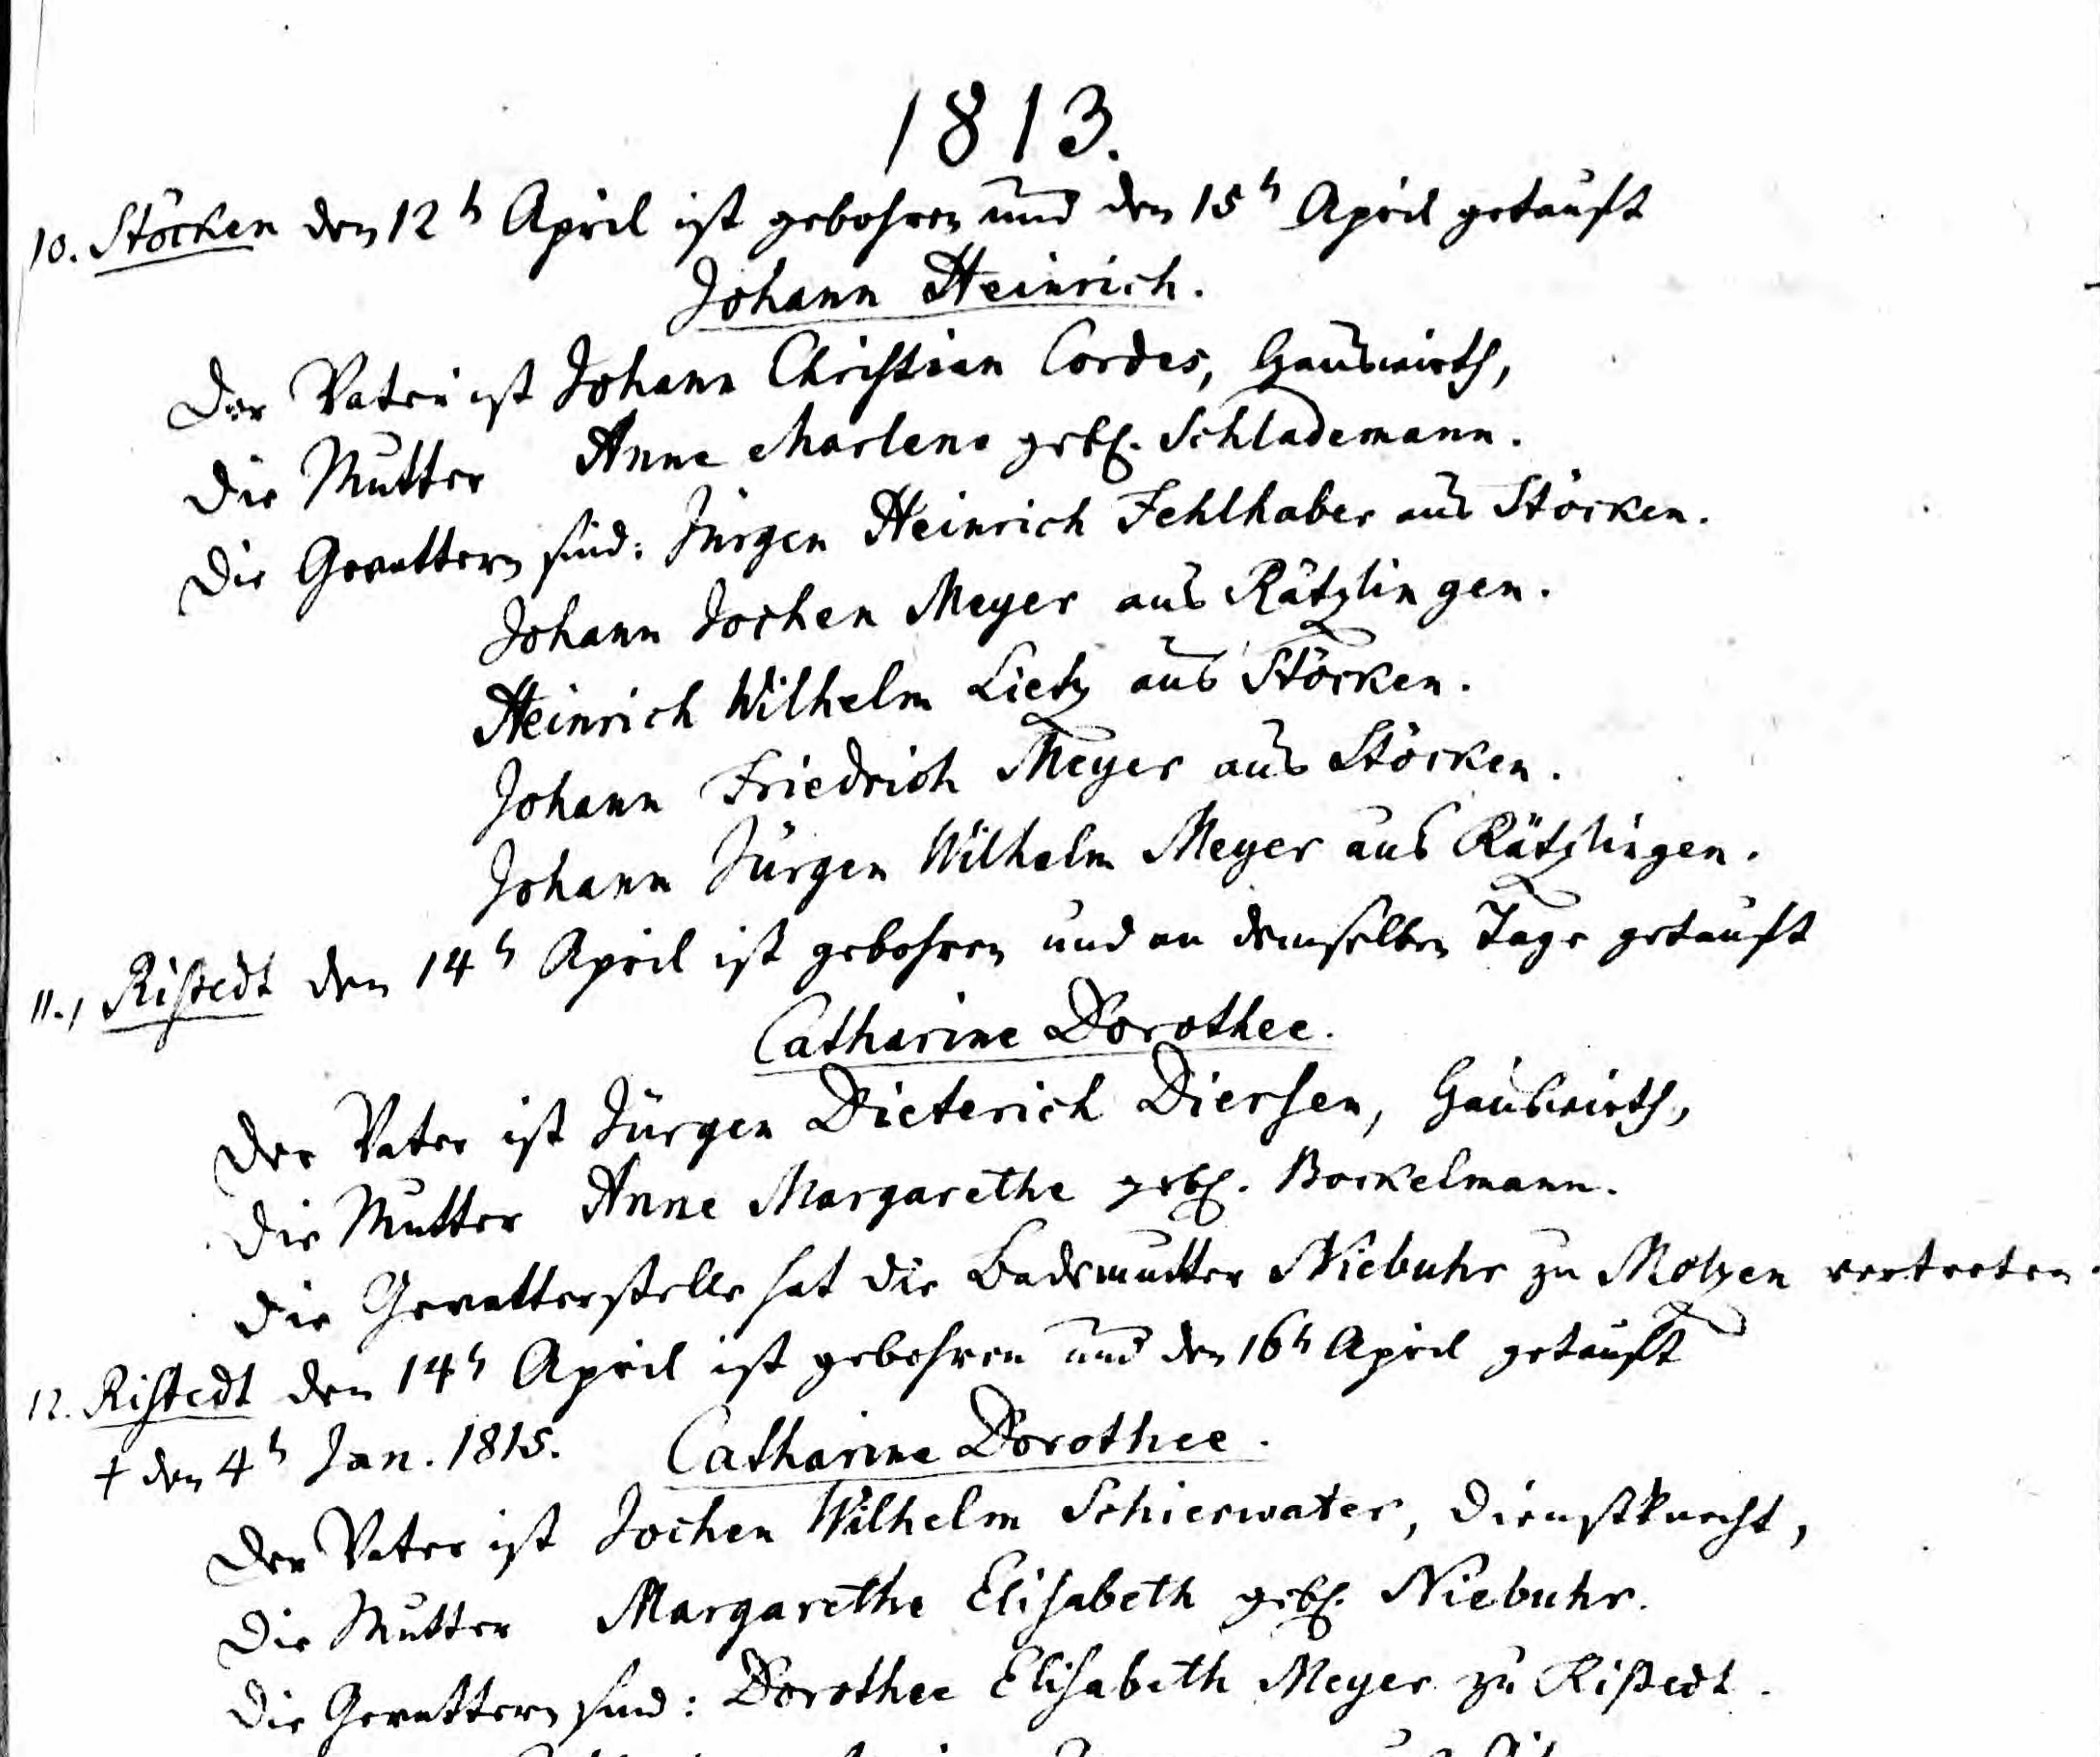 1813.
10. Stöcken den 12ⁿ April ist gebohren und den 15ⁿ April getauft
Johann Heinrich.
Der Vater ist Johann Christian Cordes, Hauswirth,
Die Mutter Anne Marlene gebh. Schlademann.
Die Gevattern sind: Jürgen Heinrich Fehlhaber aus Stöcken.
Johann Jochen Meyer aus Rätzlingen.
Heinrich Wilhelm Lietz aus Stöcken.
Johann Friedrich Meyer aus Stöcken.
Johann Jürgen Wilhelm Meyer aus Rätzlingen.
11., Ristedt den 14ⁿ April ist gebohren und an demselben Tage getauft
Catharine Dorothee.
Der Vater ist Jürgen Dieterich Diersen, Hauswirth,
Die Mutter Anne Margarethe gebh. Bockelmann.
Die Gevatterstelle hat die Bademutter Niebuhr zu Molzen vertreten.
12. Ristedt den 14ⁿ April ist gebohren und den 16ⁿ April getauft
† den 4ⁿ Jan. 1815. Catharine Dorothee.
Der Vater ist Jochen Wilhelm Schierwater, Dienstknecht,
Die Mutter Margarethe Elisabeth gebh. Niebuhr.
Die Gevattern sind: Dorothee Elisabeth Meyer zu Ristedt.